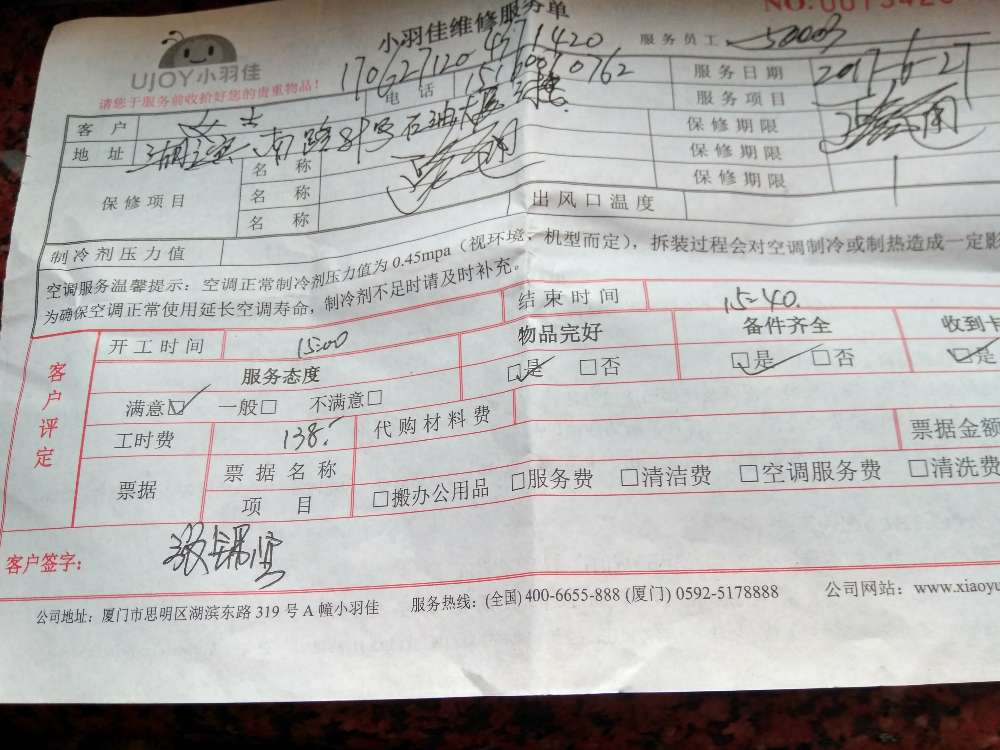 小羽佳维修服务单
UJOY小羽佳
请您于服务前收拾好您的贵重物品！
服务员工
电 话
服务日期 2017-6-27
客 户 女士
服务项目
地 址
保修期限
保修项目
名 称
保修期限
名 称
保修期限
名 称
出风口温度
制冷剂压力值
空调服务温馨提示：空调正常制冷剂压力值为 0.45mpa（视环境、机型而定），拆装过程会对空调制冷或制热造成一定影
为确保空调正常使用延长空调寿命，制冷剂不足时请及时补充。
客户评定
开工时间 15:00 结束时间 15-40.
服务态度 物品完好 备件齐全 收到卡
满意☑ 一般□ 不满意□ ☑是 □否 ☑是 □否 ☑是
工时费 138.- 代购材料费
票据 票据名称 票据金额
项 目 □搬办公用品 □服务费 □清洁费 □空调服务费 □清洗费
客户签字：
公司地址：厦门市思明区湖滨东路 319 号 A 幢小羽佳 服务热线：(全国) 400-6655-888 (厦门) 0592-5178888 公司网站：www.xiaoyu